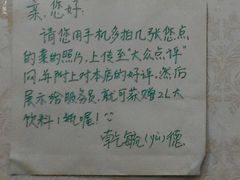 亲,您好,
请您用手机多拍几张您点
的菜的照片,上传至“大众点评”
网,并附上对本店的好评,然后
展示给服务员,就可获赠2L大
饮料1瓶喔!
乾敏(yù)德